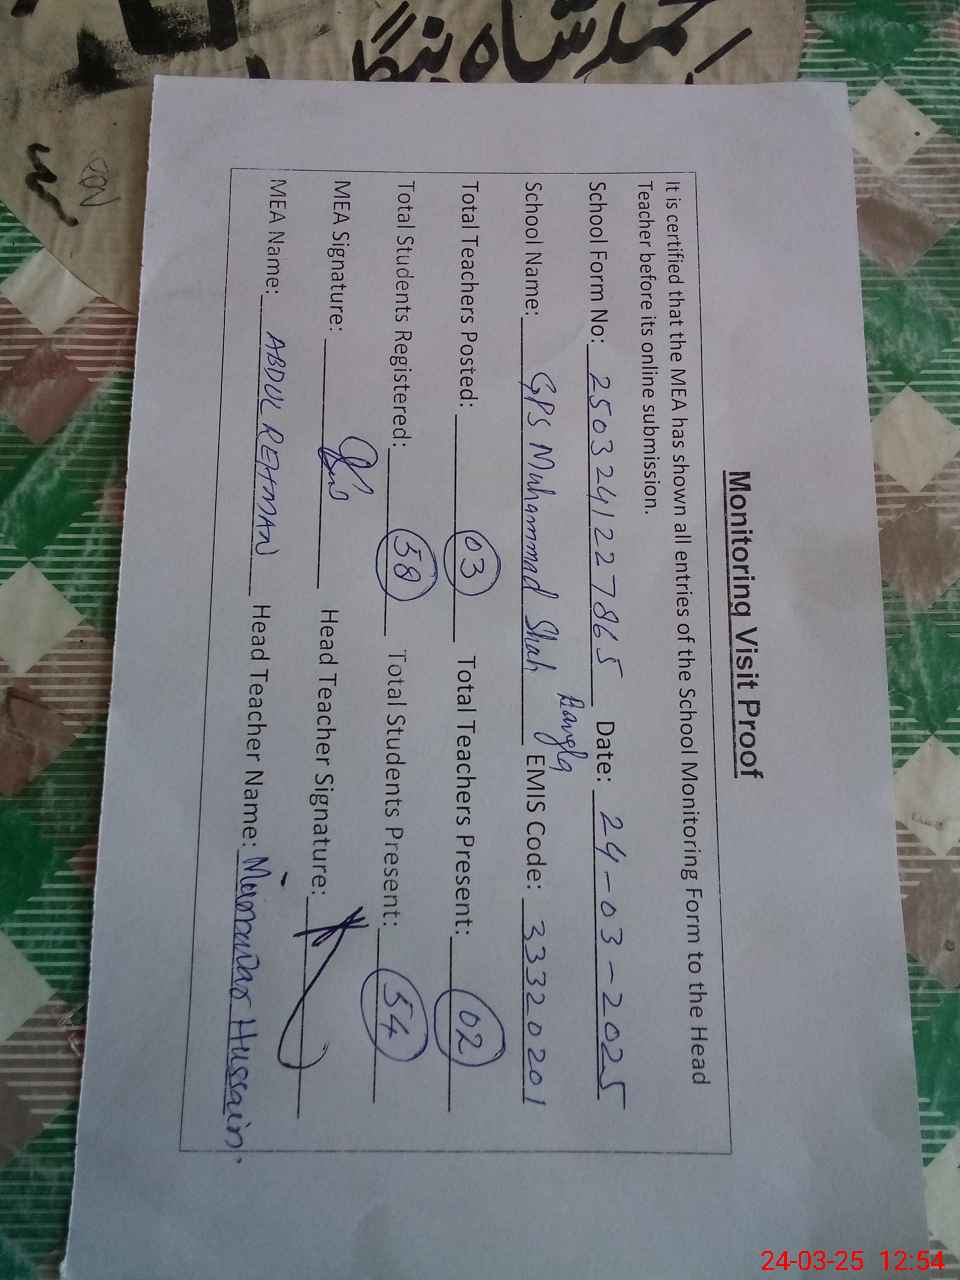 احمد شاہ بنگلہ
Monitoring Visit Proof
It is certified that the MEA has shown all entries of the School Monitoring Form to the Head
Teacher before its online submission.
School Form No: 2503241227865 Date: 24-03-2025
School Name: GPS Muhammad Shah Bangla EMIS Code: 33320201
Total Teachers Posted: 03 Total Teachers Present: 02
Total Students Registered: 58 Total Students Present: 54
MEA Signature: Head Teacher Signature:
MEA Name: ABDUL REHMAN Head Teacher Name: Munawar Hussain.
24-03-25 12:54